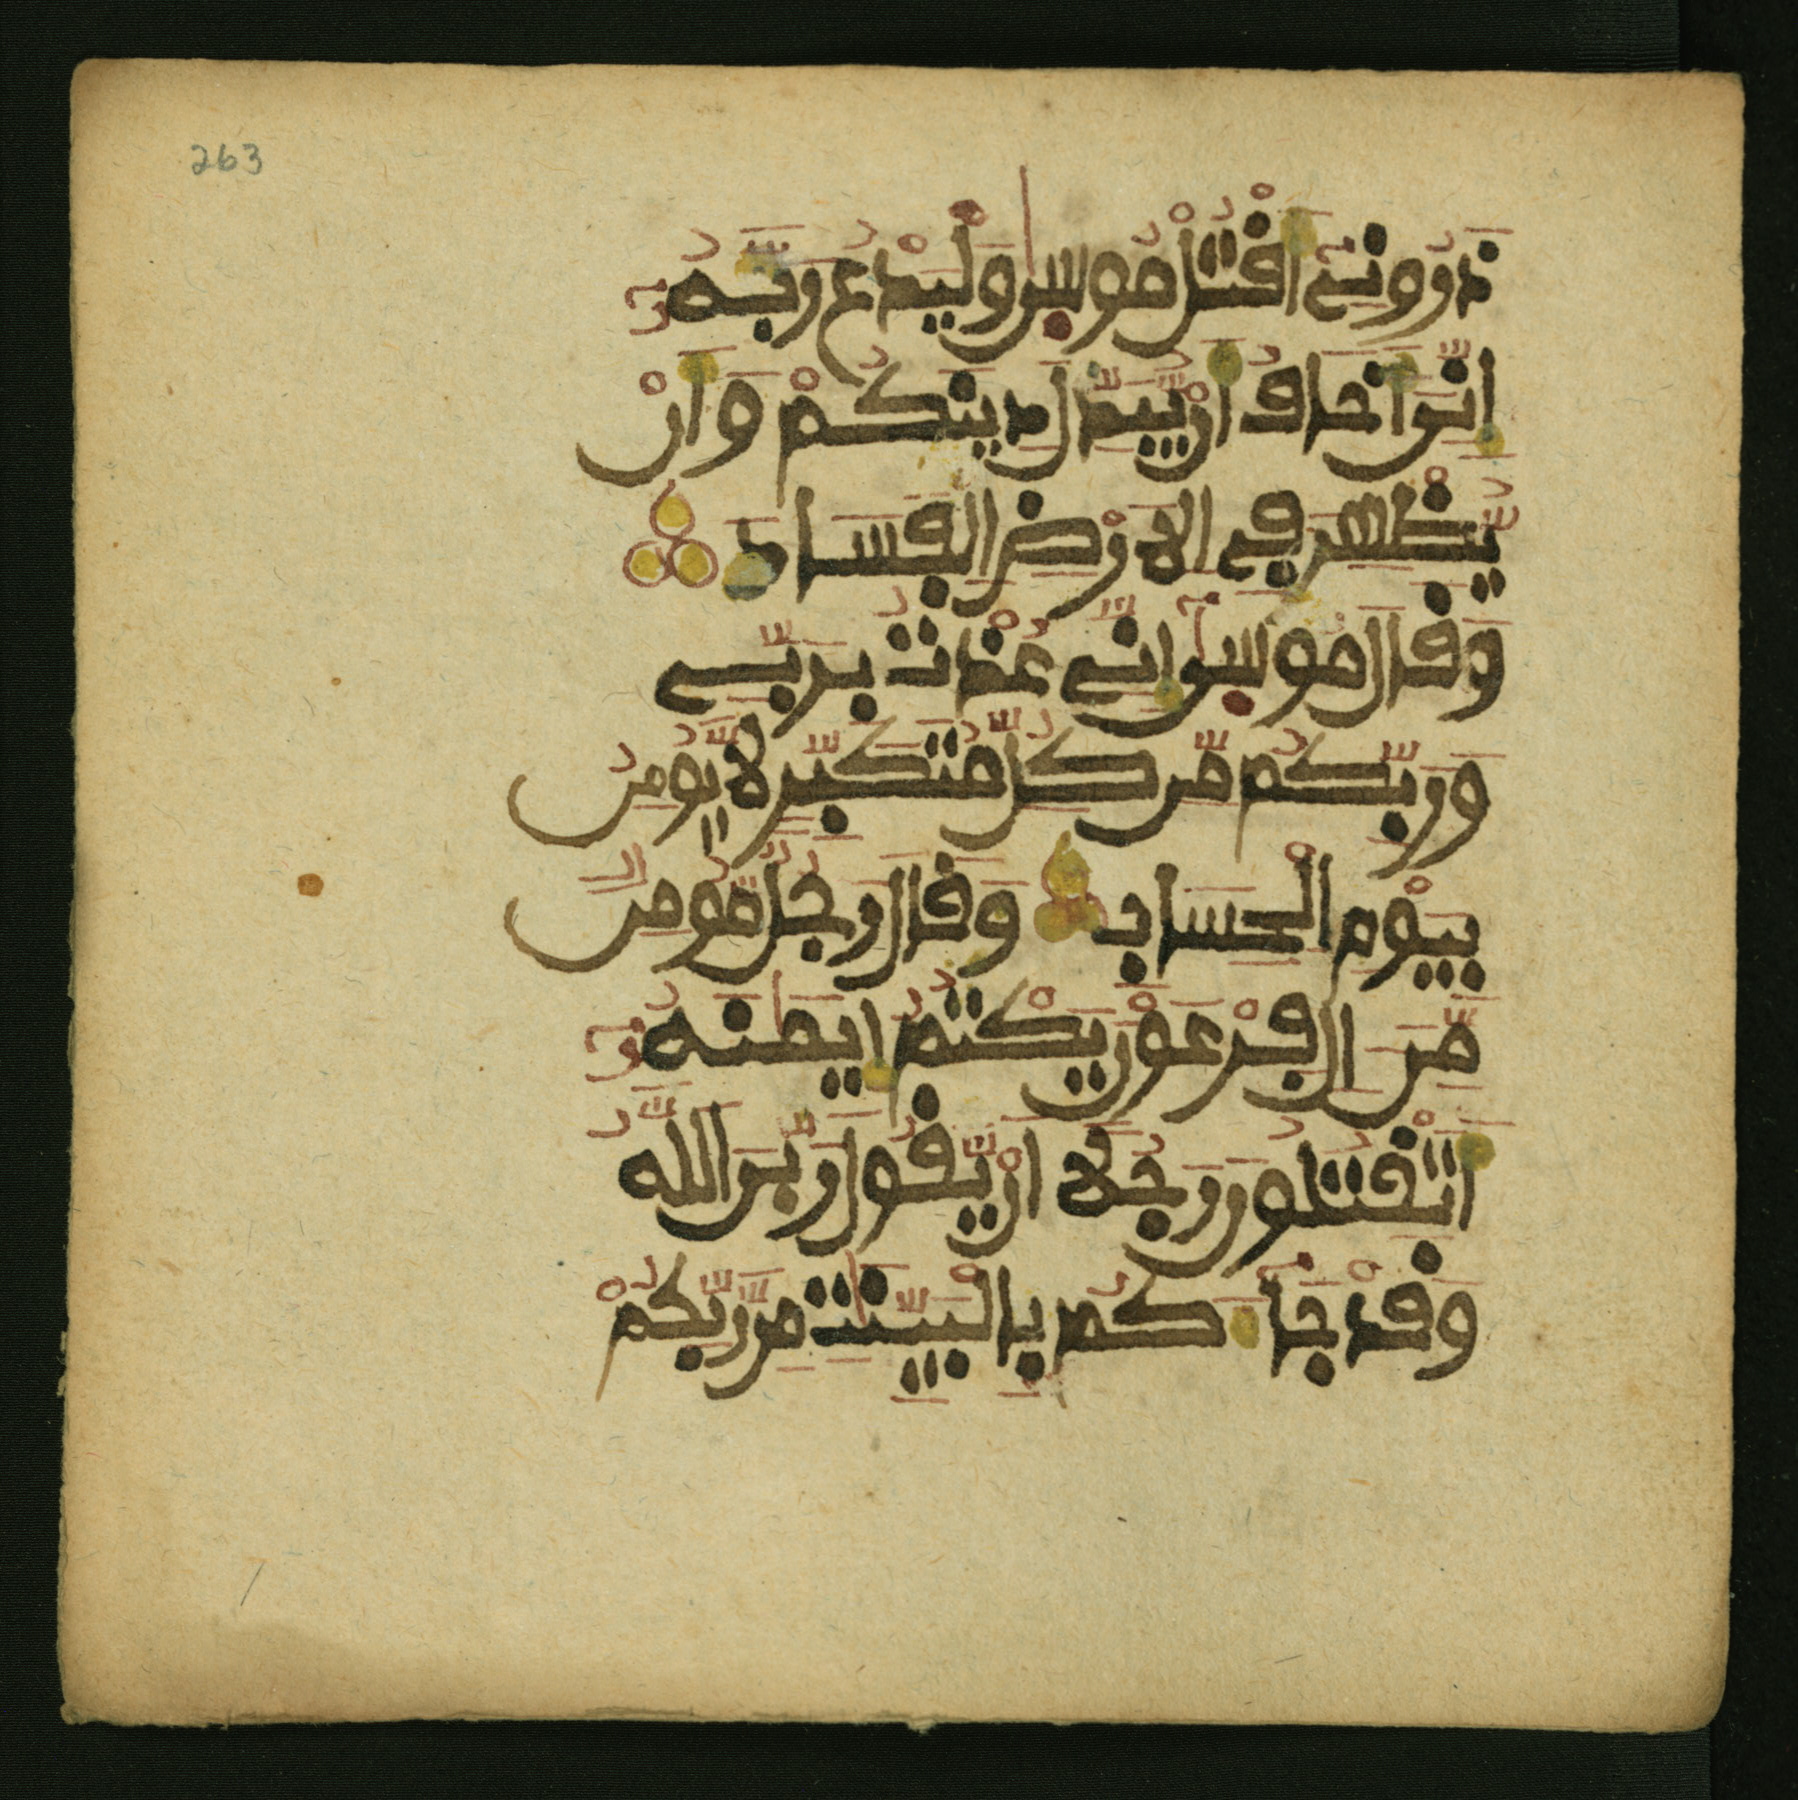 263
ذَرُونِي أَقْتُلْ مُوسىٰ وَلْيَدْعُ رَبَّهُ
إِنِّيَ أَخَافُ أَنْ يُّبَدِّلَ دِينَكُمْ وَأَنْ
يُّظْهِرَ فِي الَارْضِ الْفَسَادَ
وَقَالَ مُوسىٰ إِنِّي عُذْتُ بِرَبِّي
وَرَبِّكُم مِّن كُلِّ مُتَكَبِّرٍ لَّا يُومِنُ
بِيَوْمِ الْحِسَابِ وَقَالَ رَجُلٌ مُّومِنٌ
مِّنَ الِ فِرْعَوْنَ يَكْتُمُ إِيمَٰنَهُ
أَتَقْتُلُونَ رَجُلًا أَنْ يَّقُولَ رَبِّيَ اللَّهُ
وَقَدْ جَاءَكُم بِالْبَيِّنَٰتِ مِن رَّبِّكُمْ